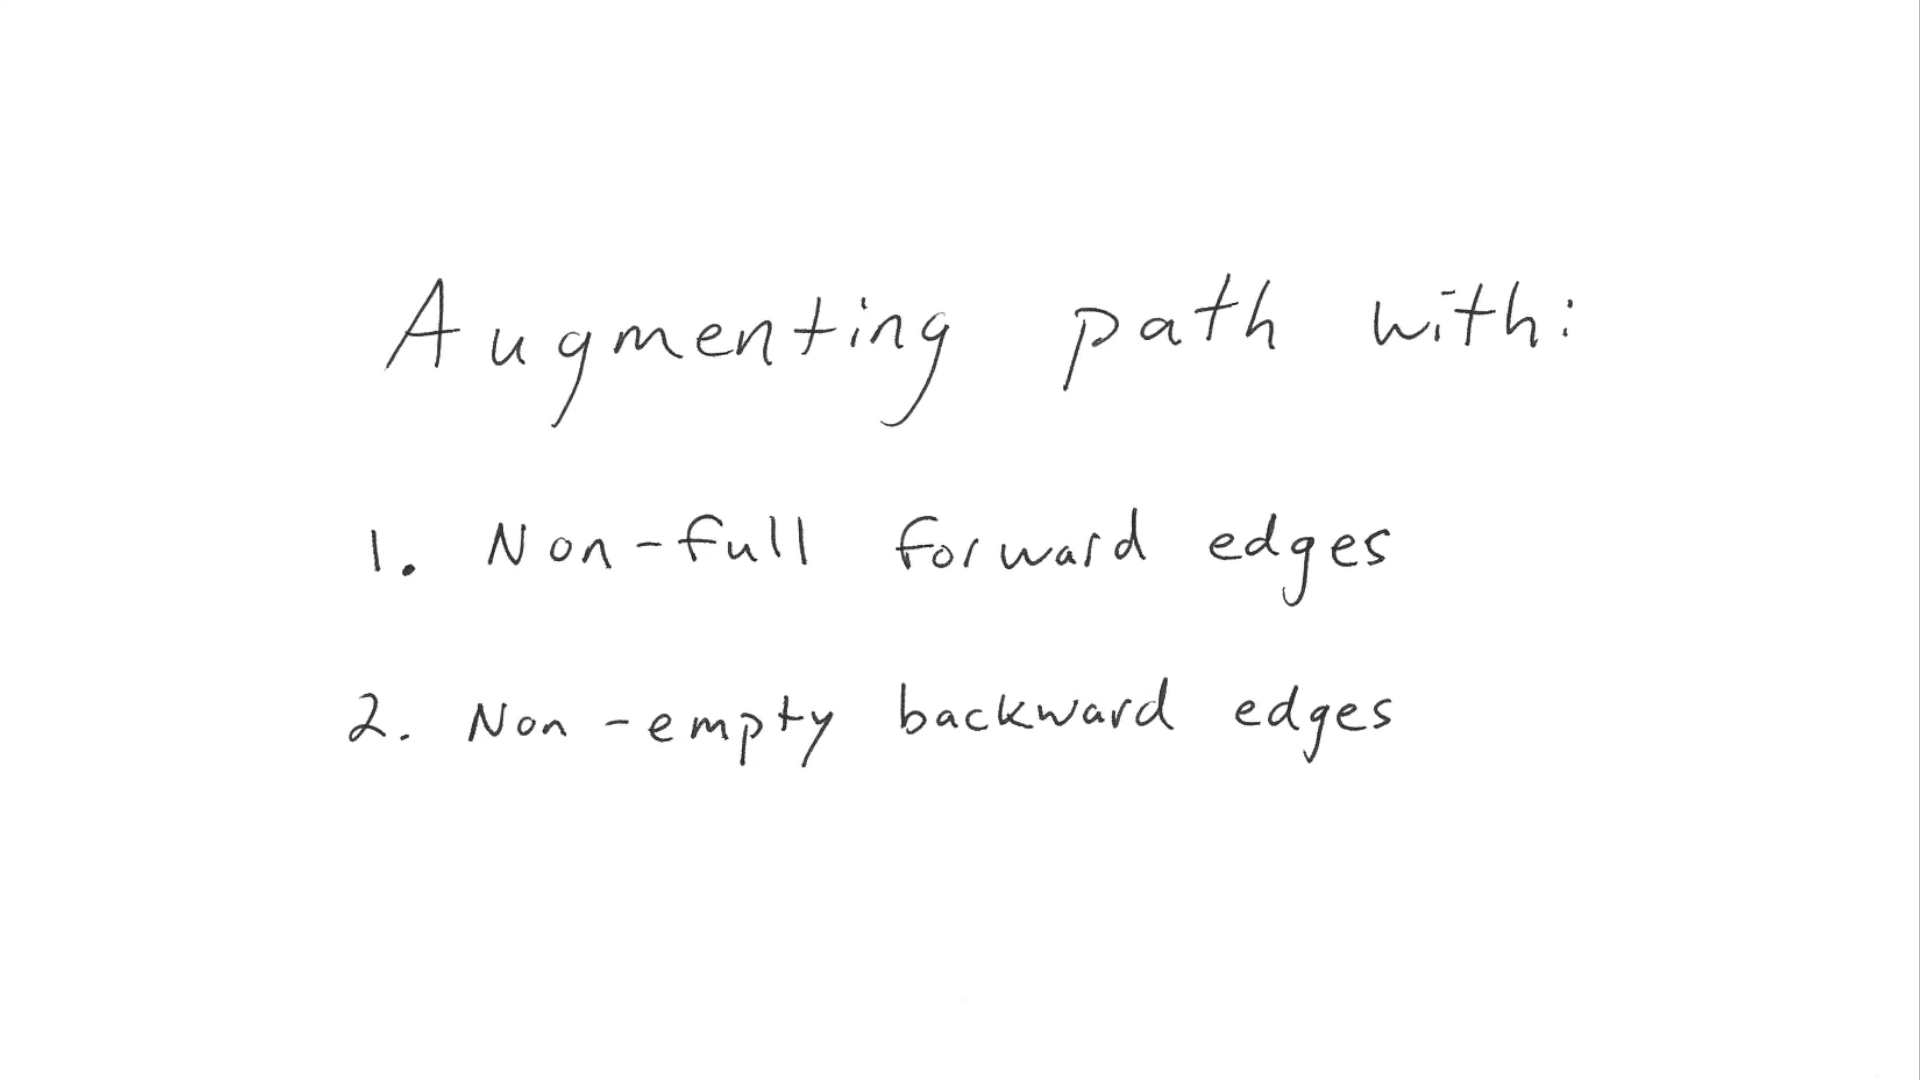 Augmenting path with:
1. Non-full forward edges
2. Non-empty backward edges